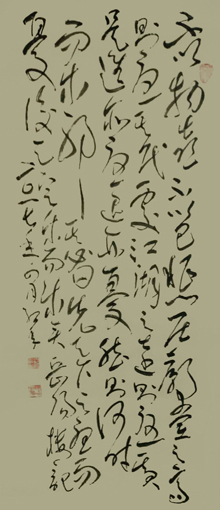 不以物喜不以己悲居廟堂之高
則憂其民處江湖之遠則憂其君
是進亦憂退亦憂然則何時
而樂耶其必曰先天下之憂而
憂後天下之樂而樂矣岳陽樓記
二〇一七年